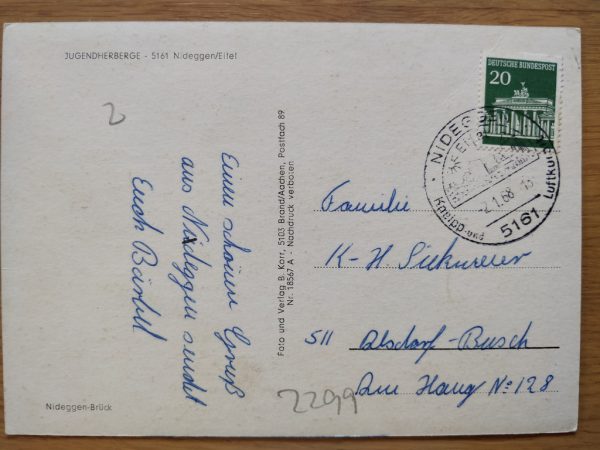 JUGENDHERBERGE - 5161 Nideggen/Eifel
2
Einen schönen Gruß
aus Nideggen sendet
Euch Bärbel
Nideggen-Brück
Foto und Verlag B. Korr, 5103 Brand/Aachen, Postfach 89
Nr. 18567 A - Nachdruck verboten
DEUTSCHE BUNDESPOST
20
NIDEGGEN
1.68
5161
Kneipp-und Luftkur
Familie
K-H.
511 Alsdorf-Busch
Am Hang No 128
2299